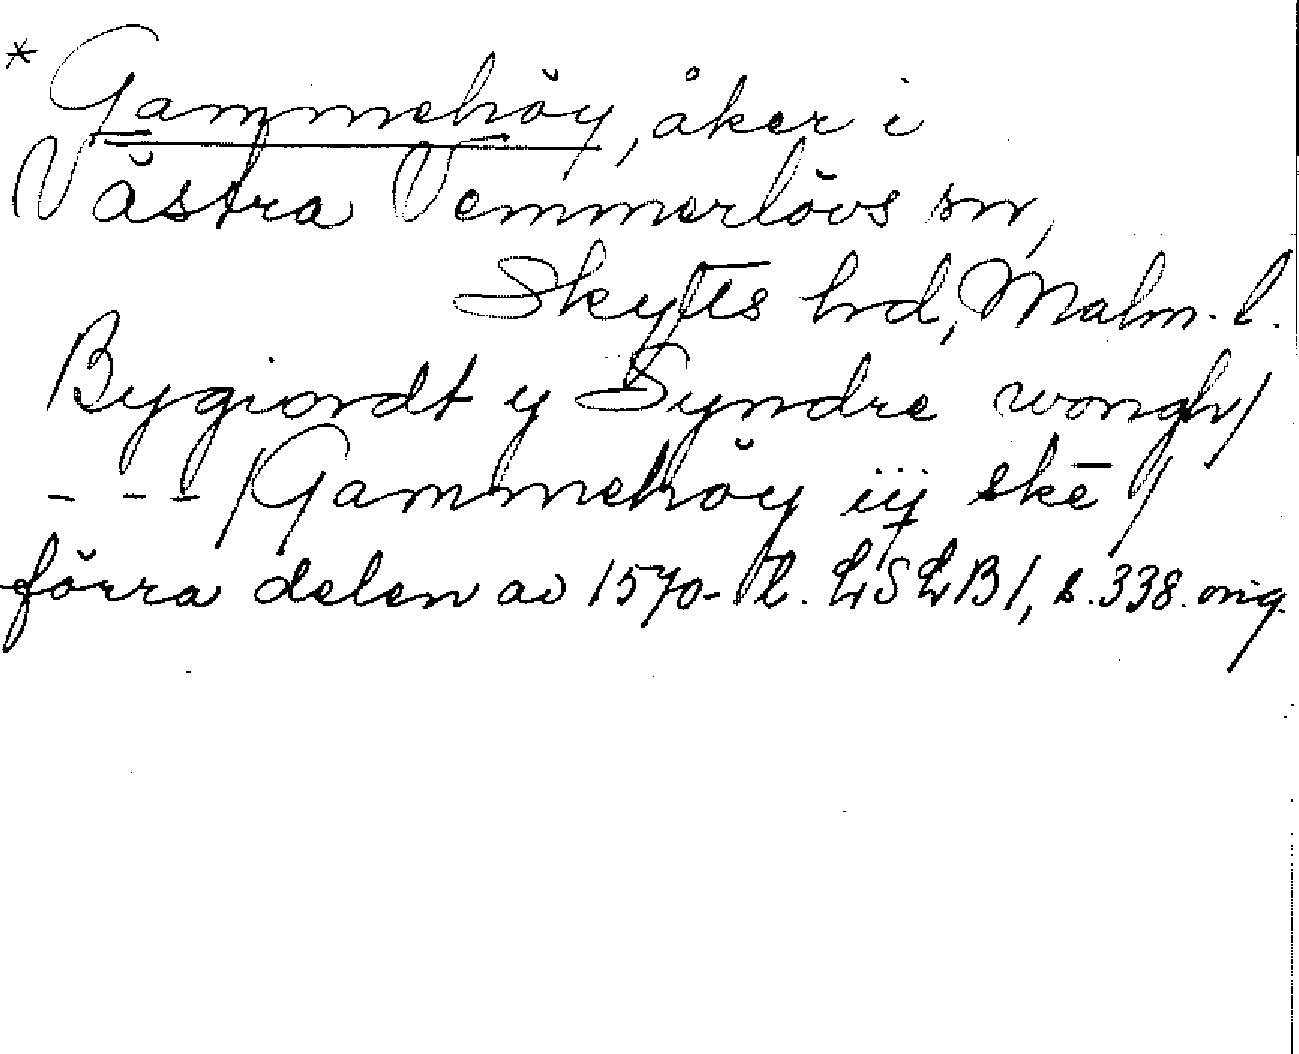 * Gammehöy, åker i
Västra Vemmerlövs sn,
Skytts hd, Malm. l.
Bygiordt y Syndre wongh/
- - - /Gammehöy iij skē/
förra delen av 1570-t. LSLB1, s. 338. orig.